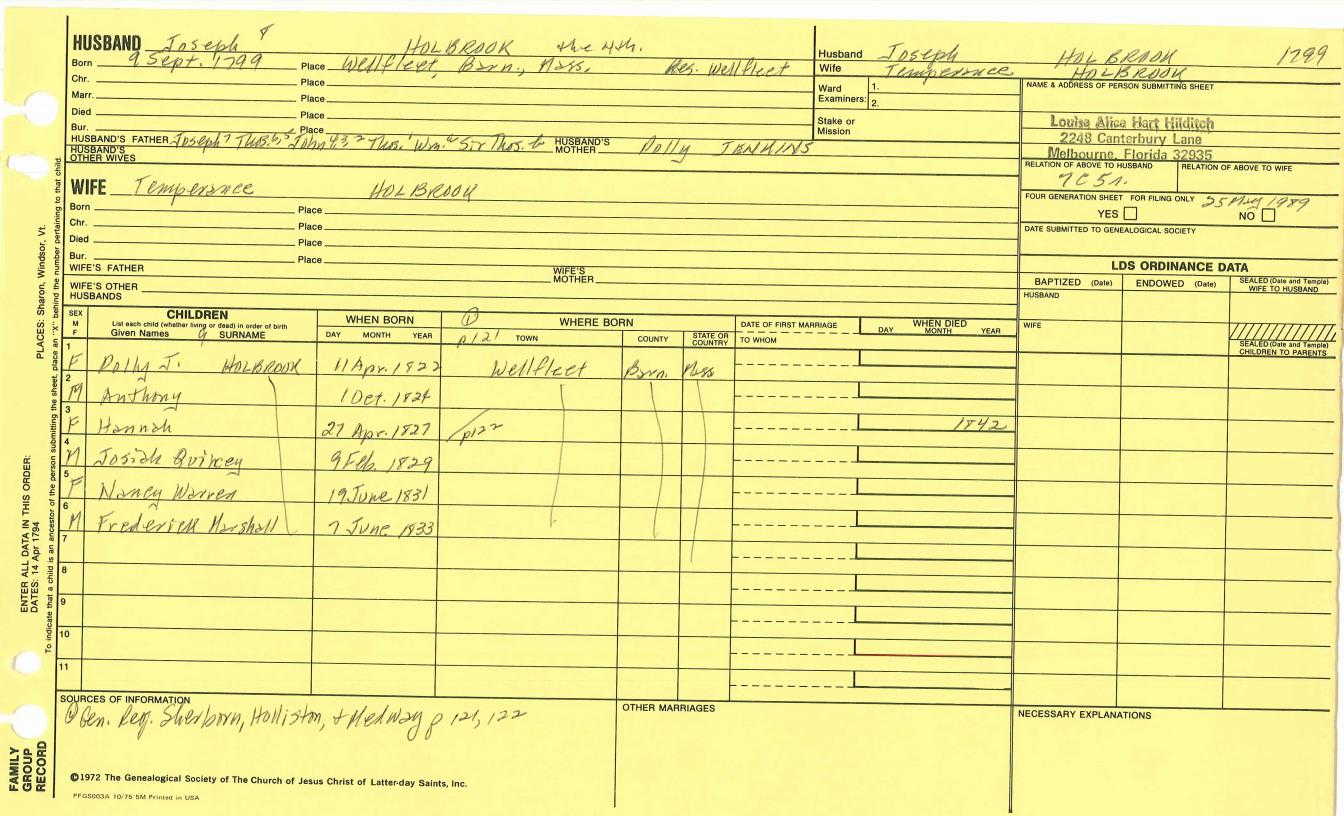 HUSBAND Joseph 8 HOLBROOK the 4th.
Born 9 Sept. 1799 Place Wellfleet, Barn., Mass. Res. Wellfleet
Chr. Place
Marr. Place
Died Place
Bur. Place
HUSBAND'S FATHER Joseph 7 Thos. 6, 5 John 4, 3, 2 Thos. 1 Wm. a Sir Thos. b HUSBAND'S MOTHER Polly JENKINS
HUSBAND'S OTHER WIVES
Husband Joseph HOLBROOK 1799
Wife Temperance HOLBROOK
Ward Examiners: 1.
2.
Stake or Mission
NAME & ADDRESS OF PERSON SUBMITTING SHEET
Louise Alice Hart Hilditch
2248 Canterbury Lane
Melbourne, Florida 32935
RELATION OF ABOVE TO HUSBAND RELATION OF ABOVE TO WIFE
7C5r.
FOUR GENERATION SHEET FOR FILING ONLY 25 May 1989
YES NO
DATE SUBMITTED TO GENEALOGICAL SOCIETY
WIFE Temperance HOLBROOK
Born Place
Chr. Place
Died Place
Bur. Place
WIFE'S FATHER WIFE'S MOTHER
WIFE'S OTHER HUSBANDS
LDS ORDINANCE DATA
BAPTIZED (Date) ENDOWED (Date) SEALED (Date and Temple) WIFE TO HUSBAND
HUSBAND
WIFE
SEALED (Date and Temple) CHILDREN TO PARENTS
SEX M F
CHILDREN
List each child (whether living or dead) in order of birth
Given Names 9 SURNAME
WHEN BORN
DAY MONTH YEAR
① WHERE BORN
p121 TOWN COUNTY STATE OR COUNTRY
DATE OF FIRST MARRIAGE
TO WHOM
WHEN DIED
DAY MONTH YEAR
1 F Polly J. HOLBROOK 11 Apr. 1822 Wellfleet Barn. Mass
2 M Anthony 1 Oct. 1824
3 F Hannah 27 Apr. 1827 p122 1842
4 M Josiah Quincey 9 Feb. 1829
5 F Nancy Warren 19 June 1831
6 M Frederick Marshall 7 June 1833
7
8
9
10
11
SOURCES OF INFORMATION
① Gen. Reg. Sherborn, Holliston, & Medway p 121, 122
OTHER MARRIAGES
NECESSARY EXPLANATIONS
©1972 The Genealogical Society of The Church of Jesus Christ of Latter-day Saints, Inc.
PFGS003A 10/75 5M Printed in USA
PLACES: Sharon, Windsor, Vt.
ENTER ALL DATA IN THIS ORDER:
DATES: 14 Apr 1794
To indicate that a child is an ancestor of the person submitting the sheet, place an "X" behind the number pertaining to that child.
FAMILY GROUP RECORD